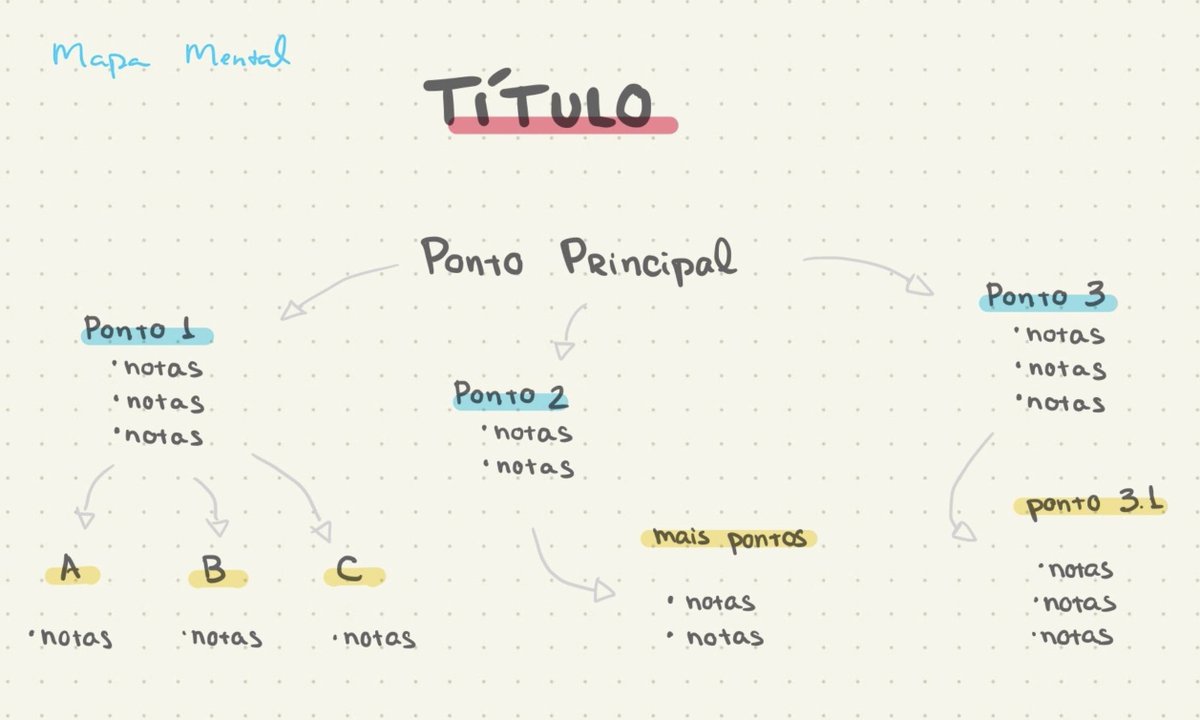 Mapa Mental
TÍTULO
Ponto Principal
Ponto 1
• notas
• notas
• notas
Ponto 2
• notas
• notas
Ponto 3
• notas
• notas
• notas
A
• notas
B
• notas
C
• notas
mais pontos
• notas
• notas
ponto 3.1
• notas
• notas
• notas